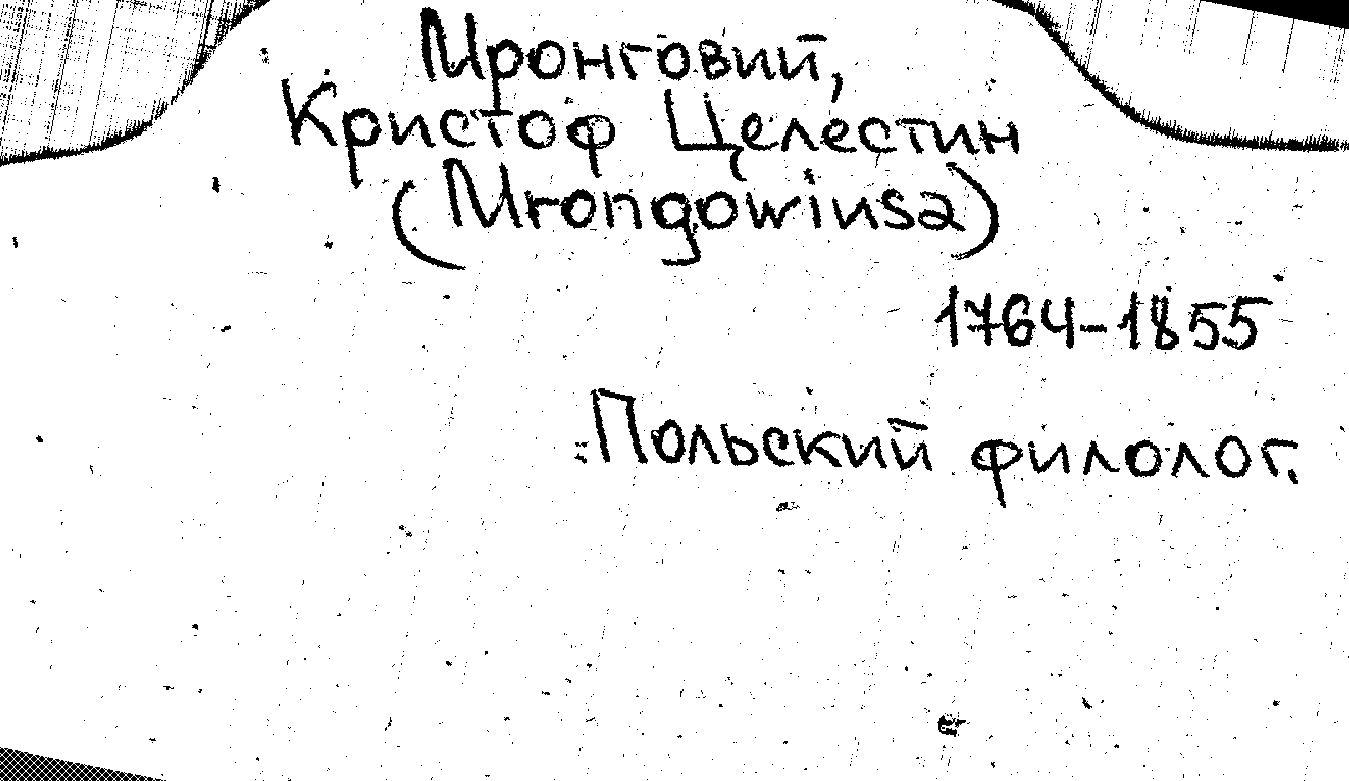 Мронговий,
Кристоф Целестин
(Mrongowiusa)
1764-1855
Польский филолог.